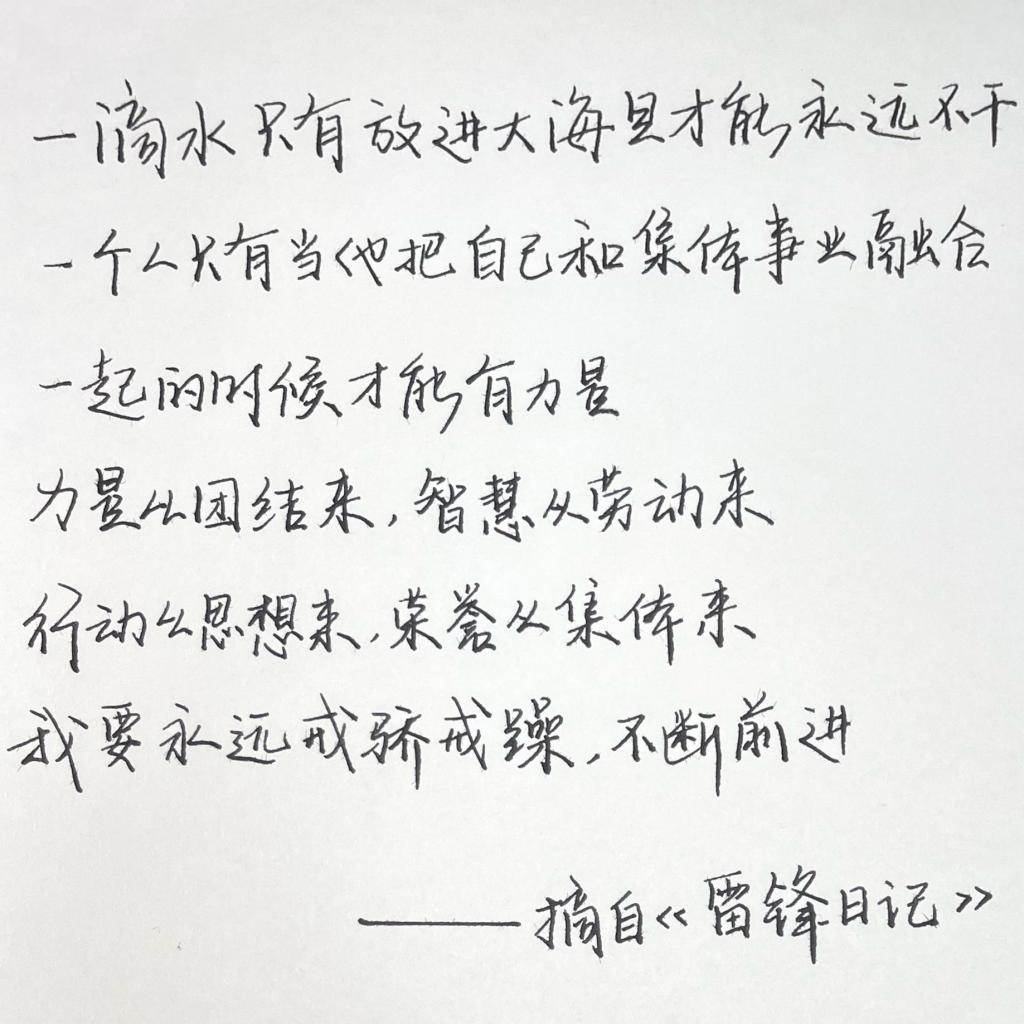 一滴水只有放进大海里才能永远不干
一个人只有当他把自己和集体事业融合
一起的时候才能有力量
力量从团结来,智慧从劳动来
行动从思想来,荣誉从集体来
我要永远戒骄戒躁,不断前进
——摘自《雷锋日记》